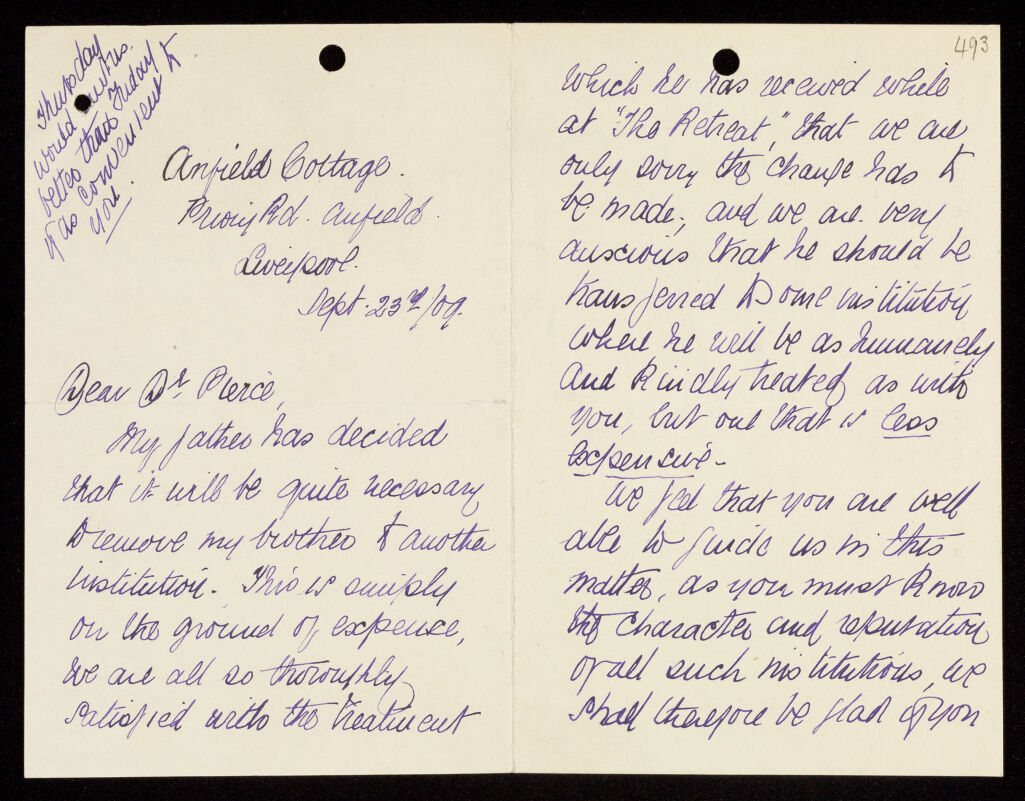 Thursday
would suit us
better than Friday
if as convenient to
you.
Anfield Cottage.
Priory Rd. Anfield.
Liverpool.
Sept. 23rd/09.
Dear Dr Pierce,
My father has decided
that it will be quite necessary
to remove my brother to another
institution. This is simply
on the ground of expense,
we are all so thoroughly
satisfied with the treatment
493
which he has received while
at "The Retreat", that we are
only sorry the change has to
be made, and we are very
anxious that he should be
transferred to some institution
where he will be as humanely
and kindly treated as with
you, but one that is less
expensive -
We feel that you are well
able to guide us in this
matter, as you must know
the character and reputation
of all such institutions, we
shall therefore be glad if you